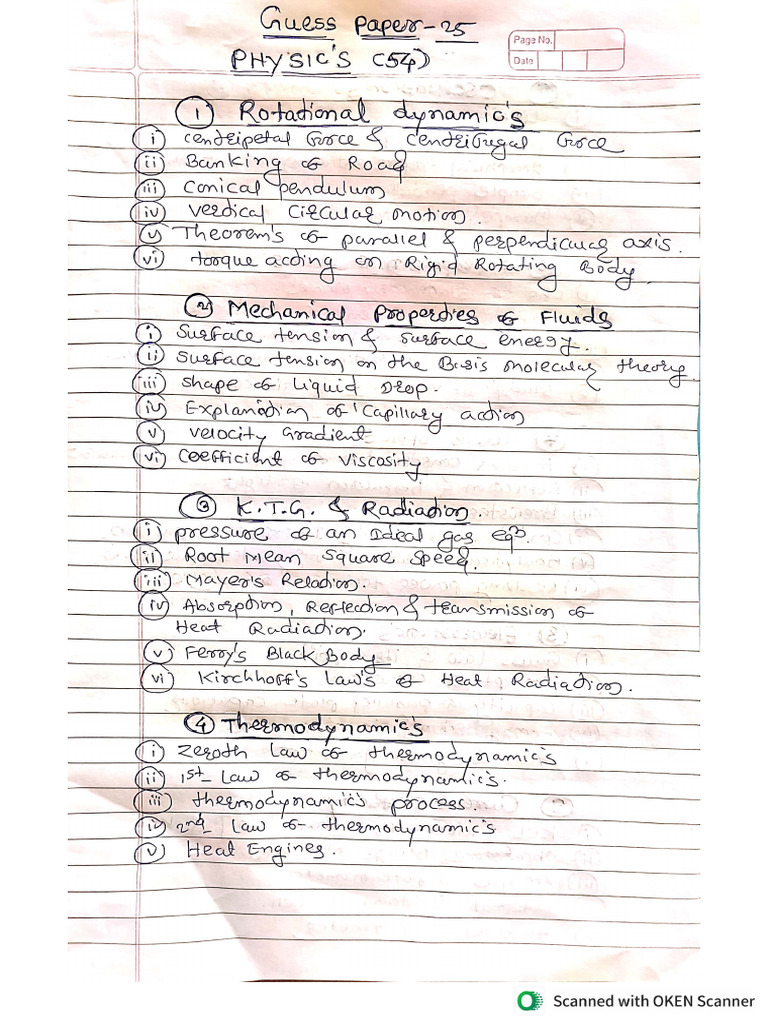 Guess Paper-25
Page No.
PHYSIC'S (54)
Date
① Rotational dynamic's
(i) centripetal force & centrifugal force
(ii) Banking of Road
(iii) conical pendulum
(iv) vertical circular motion.
(v) Theorem's of parallel & perpendicular axis.
(vi) torque acting on Rigid Rotating Body.
② Mechanical Properties of Fluids
(i) surface tension & surface energy.
(ii) surface tension on the Basis molecular theory.
(iii) shape of Liquid Drop.
(iv) Explanation of Capillary action
(v) velocity Gradient
(vi) coefficient of viscosity
③ K.T.G. & Radiation.
(i) pressure of an Ideal gas eqn.
(ii) Root Mean Square Speed.
(iii) Mayer's Relation.
(iv) Absorption, Reflection & transmission of
Heat Radiation.
(v) Ferry's Black Body
(vi) Kirchhoff's Law's of Heat Radiation.
④ Thermodynamic's
(i) Zeroth Law of thermodynamic's
(ii) 1st Law of thermodynamic's.
(iii) thermodynamic's process.
(iv) 2nd Law of thermodynamic's
(v) Heat Engines.
Scanned with OKEN Scanner